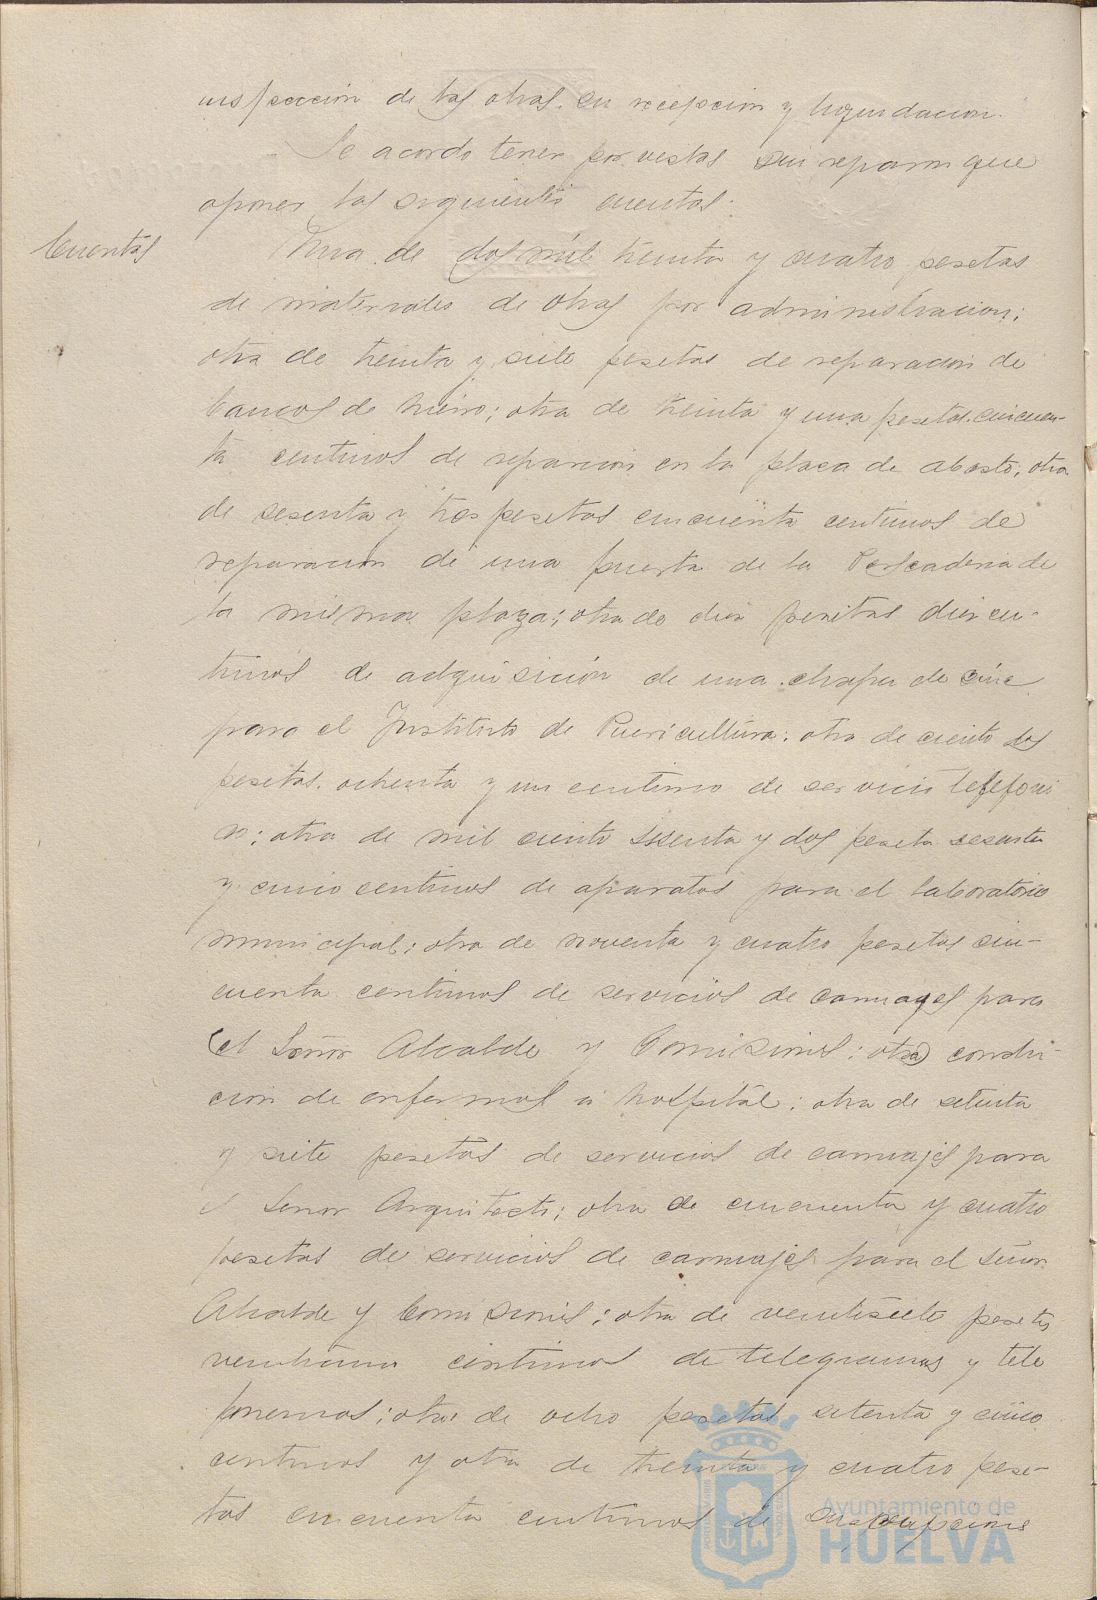 inspección de las obras. su recepcion y liquidacion.
Se acordo tener por vistas sin reparos que
oponer las siguientes cuentas.
Cuentas
Una de dos mil treinta y cuatro pesetas
de materiales de obras por administracion;
otra de treinta y siete pesetas de reparacion de
bancos de hierro; otra de treinta y una pesetas cincuen-
ta centimos de reparacion en la plaza de abasto; otra
de sesenta y tres pesetas cincuenta centimos de
reparacion de una puerta de la Pescaderia de
la misma plaza; otra de diez pesetas diez cen-
timos de adquisición de una chapa de cinc
para el Instituto de Puericultura; otra de ciento dos
pesetas ochenta y un centimo de servicio telefoni
co; otra de mil ciento sesenta y dos peseta sesenta
y cinco centimos de aparatos para el laboratorio
municipal; otra de noventa y cuatro pesetas cin-
cuenta centimos de servicios de carruages para
(el Señor Alcalde y Comisiones; otra) conduc-
cion de enfermos a hospital; otra de setenta
y siete pesetas de servicios de carruajes para
el Señor Arquitecto; otra de cincuenta y cuatro
pesetas de servicios de carruajes para el Señor
Alcalde y Comisiones; otra de veintisiete pesetas
centimos de telegramas y tele
fonemas; otra de ocho pesetas setenta y cinco
centimos y otra de treinta y cuatro pese-
tas cincuenta centimos de suscripciones
Ayuntamiento de
HUELVA